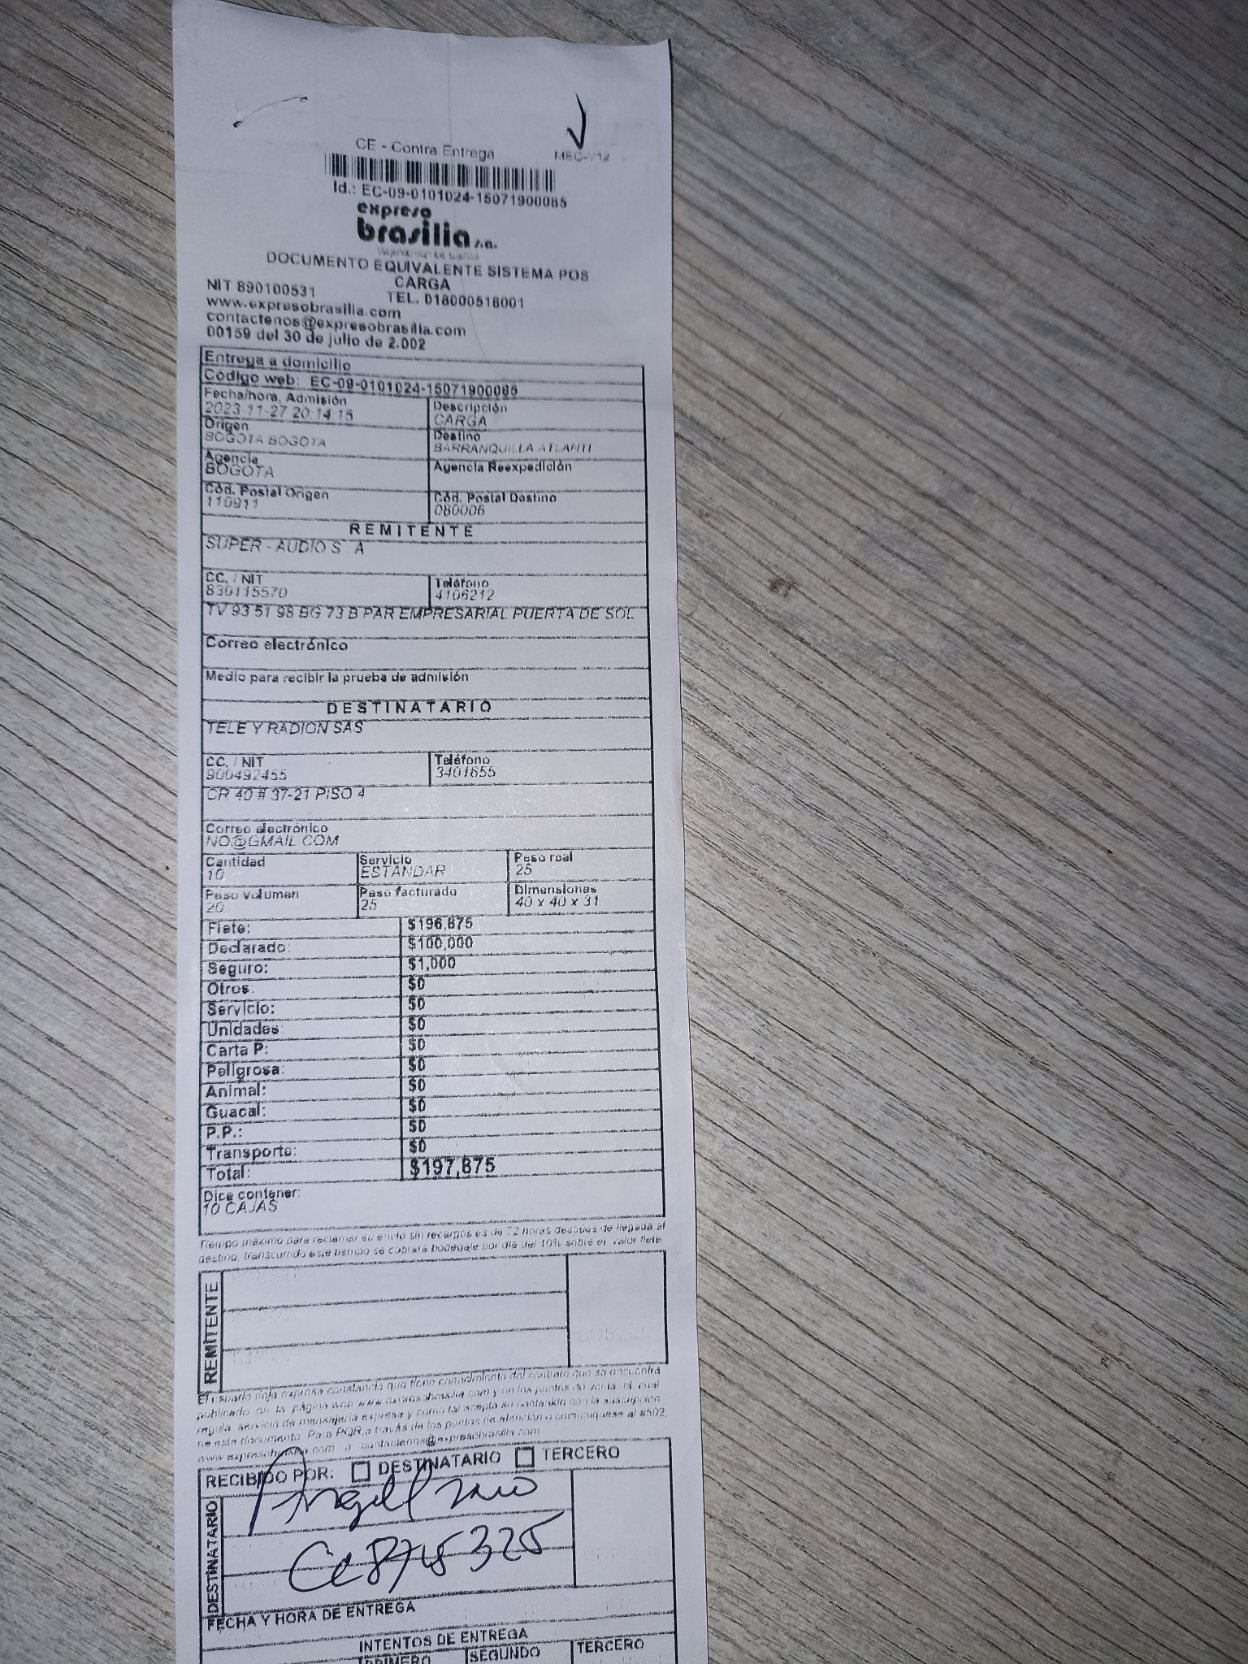 CE - Contra Entrega
MEC-V12
Id.: EC-09-0101024-15071900085
expreso
brasilia s.a.
DOCUMENTO EQUIVALENTE SISTEMA POS
CARGA
NIT 890100531
TEL. 018000518001
www.expresobrasilia.com
contactenos@expresobrasilia.com
00159 del 30 de julio de 2.002
Entrega a domicilio
Código web: EC-09-0101024-15071900085
Fecha/hora, Admisión
2023-11-27 20:14:15
Descripción
CARGA
Origen
BOGOTA BOGOTA
Destino
BARRANQUILLA ATLANTI
Agencia
BOGOTA
Agencia Reexpedición
Cód. Postal Origen
110911
Cód. Postal Destino
080006
REMITENTE
SUPER - AUDIO S A
CC. / NIT
830115570
Teléfono
4106212
TV 93 51 98 BG 73 B PAR EMPRESARIAL PUERTA DE SOL
Correo electrónico
Medio para recibir la prueba de admisión
DESTINATARIO
TELE Y RADION SAS
CC. / NIT
900492455
Teléfono
3401655
CR 40 # 37-21 PISO 4
Correo electrónico
NO@GMAIL.COM
Cantidad
10
Servicio
ESTANDAR
Peso real
25
Peso volumen
20
Peso facturado
25
Dimensiones
40 x 40 x 31
Flete: $196,875
Declarado: $100,000
Seguro: $1,000
Otros: $0
Servicio: $0
Unidades: $0
Carta P: $0
Peligrosa: $0
Animal: $0
Guacal: $0
P.P.: $0
Transporte: $0
Total: $197,875
Dice contener:
10 CAJAS
Tiempo máximo para reclamar su envío sin recargos es de 72 horas después de llegada al
destino, transcurrido este tiempo se cobrará bodegaje por día del 10% sobre el valor flete
REMITENTE
El usuario deja expresa constancia que tiene conocimiento del contrato que se encuentra
publicado en la página web www.expresobrasilia.com y en los puntos de venta, el cual
regula servicio de mensajería expresa y como tal acepta su contenido con la suscripción
de este documento. Para PQR a través de los puntos de atención o comuníquese al #502,
www.expresobrasilia.com o contactenos@expresobrasilia.com
RECIBIDO POR: DESTINATARIO TERCERO
DESTINATARIO
CC 8745325
FECHA Y HORA DE ENTREGA
INTENTOS DE ENTREGA
PRIMERO SEGUNDO TERCERO